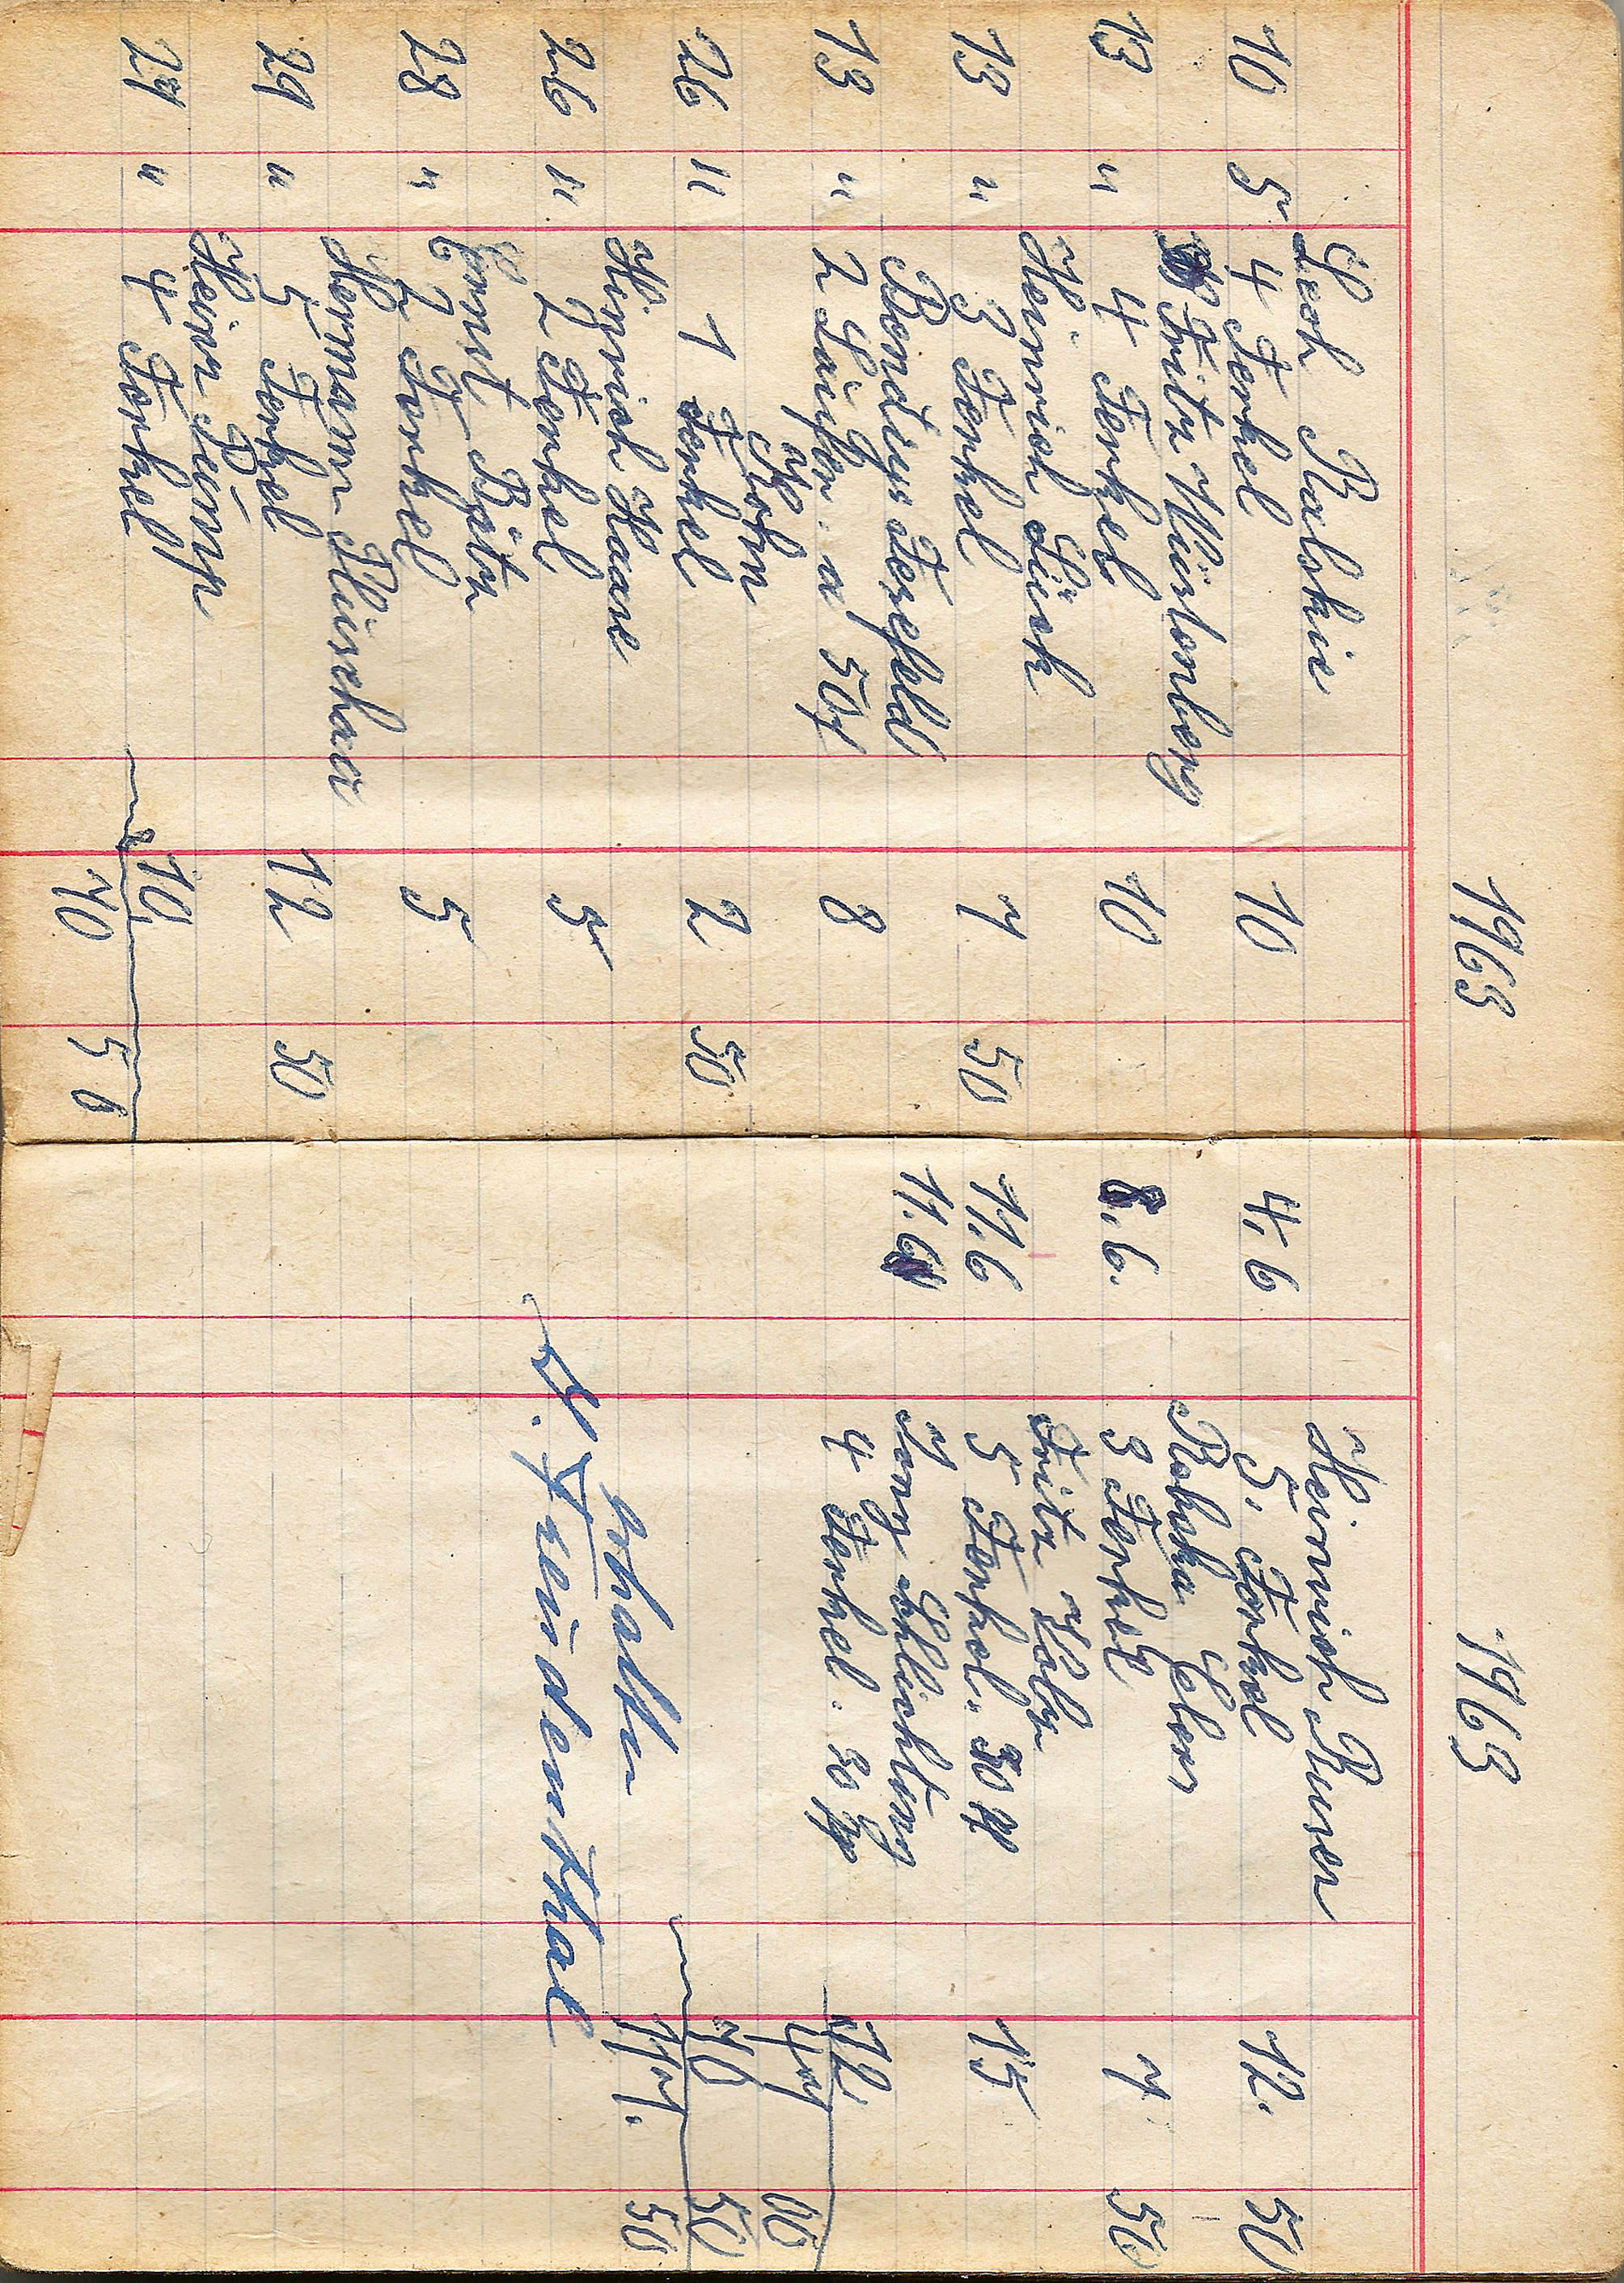 1963
Lesch Ralskie
10 5 4 Ferkel 10
Fritz Würtenberg
13 " 4 Ferkel 10
Heinrich Lück
13 " 3 Ferkel 7 50
Bondys Forefeld
13 " 2 Läufer a 50 8
Kohn
26 " 1 Ferkel 2 50
Hinrich Haase
26 " 2 Ferkel 5
Ernst Bötz
28 " 2 Ferkel 5
Hermann Plüschaa
29 " 5 Ferkel 12 50
Hein Pump
29 " 4 Ferkel 10
70 50
1963
Heinrich Buser
4. 6 5. Ferkel 12. 50
8. 6. 3 Ferkel 7 50
Fritz
11. 6 5 Ferkel. 30 15
Schlichting
11. 6 4 Ferkel. 30 12
47 00
70 50
117. 50
erhalten
H. Freudenthal